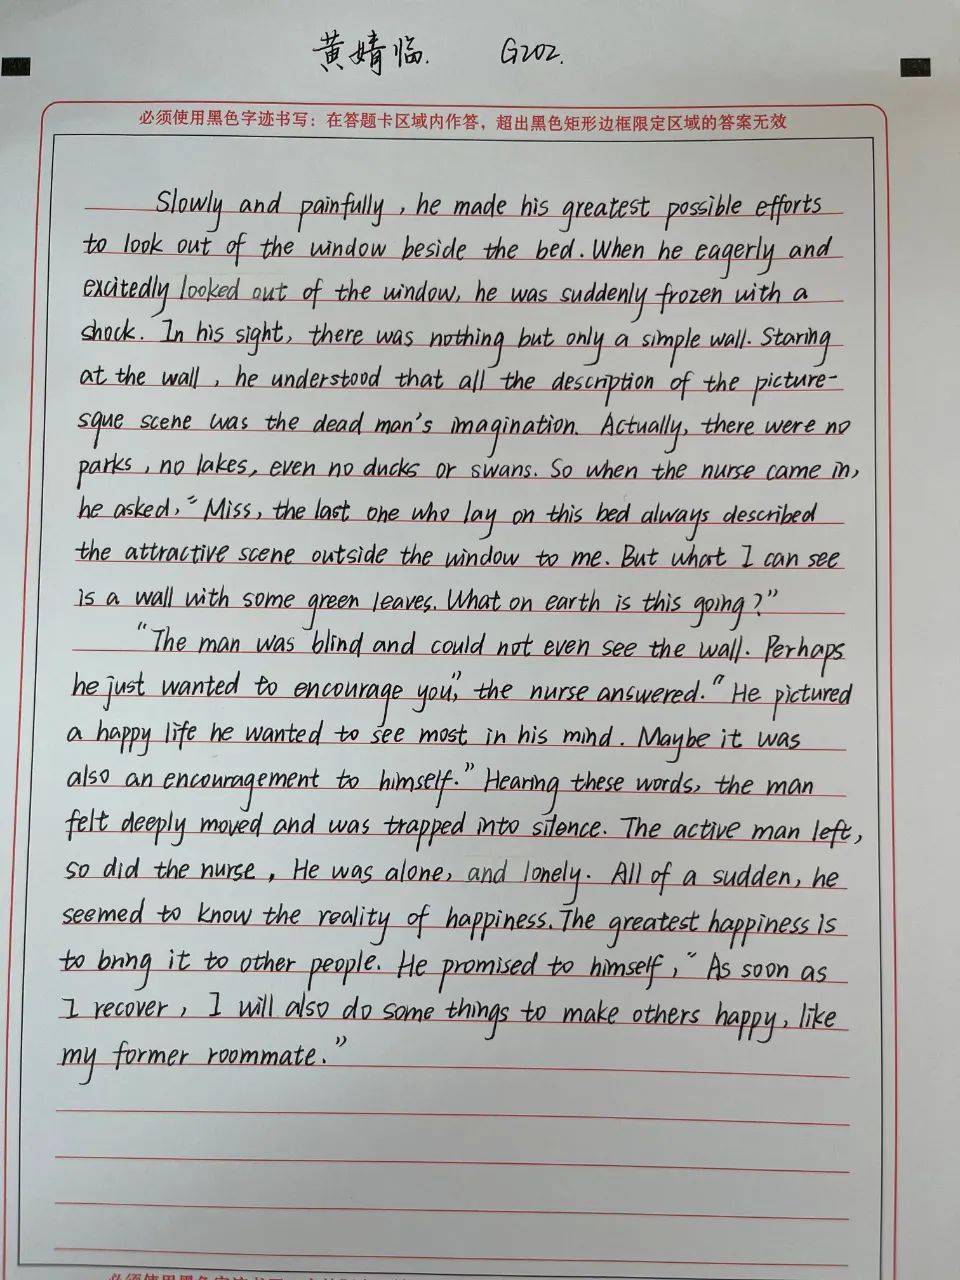 黄婧临. G202.
必须使用黑色字迹书写：在答题卡区域内作答，超出黑色矩形边框限定区域的答案无效
Slowly and painfully, he made his greatest possible efforts
to look out of the window beside the bed. When he eagerly and
excitedly looked out of the window, he was suddenly frozen with a
shock. In his sight, there was nothing but only a simple wall. Staring
at the wall, he understood that all the description of the picture-
sque scene was the dead man's imagination. Actually, there were no
parks, no lakes, even no ducks or swans. So when the nurse came in,
he asked, "Miss, the last one who lay on this bed always described
the attractive scene outside the window to me. But what I can see
is a wall with some green leaves. What on earth is this going?"
"The man was blind and could not even see the wall. Perhaps
he just wanted to encourage you", the nurse answered. "He pictured
a happy life he wanted to see most in his mind. Maybe it was
also an encouragement to himself." Hearing these words, the man
felt deeply moved and was trapped into silence. The active man left,
so did the nurse, He was alone, and lonely. All of a sudden, he
seemed to know the reality of happiness. The greatest happiness is
to bring it to other people. He promised to himself, "As soon as
I recover, I will also do some things to make others happy, like
my former roommate."